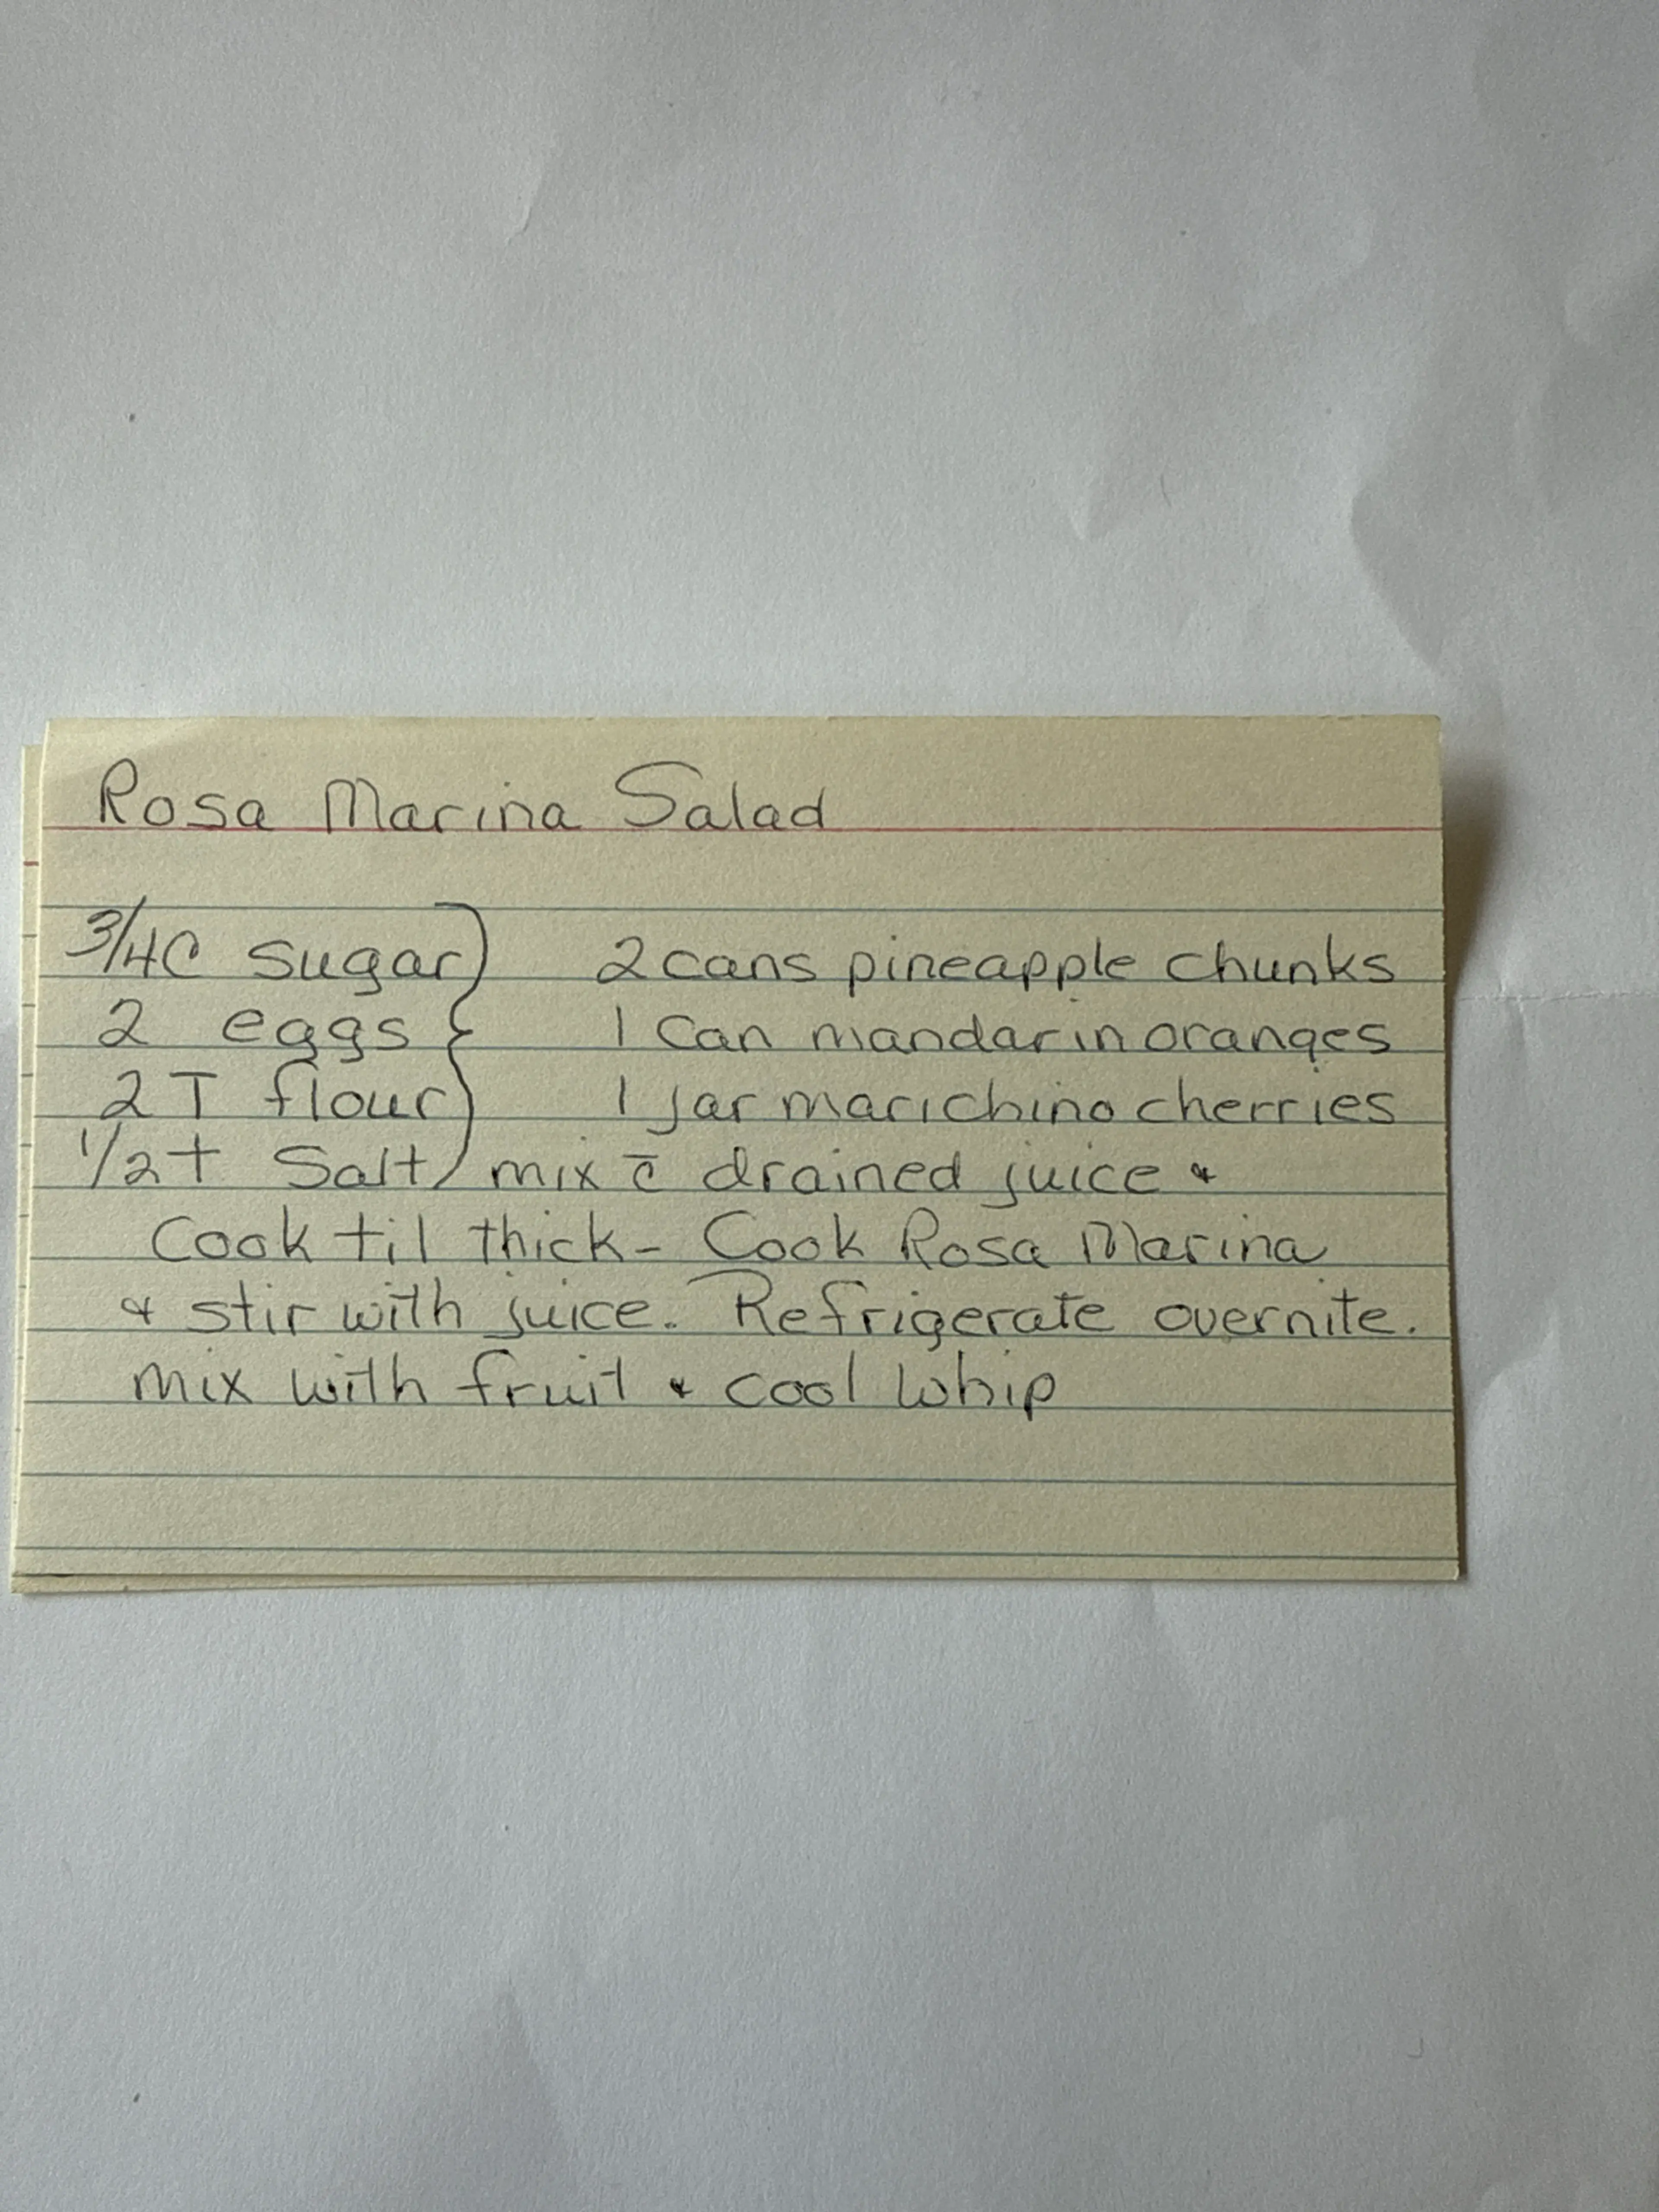 Rosa Marina Salad
3/4C sugar } 2 cans pineapple chunks
2 eggs } 1 Can mandarin oranges
2 T flour } 1 jar marichino cherries
1/2 t Salt } mix c̄ drained juice &
Cook til thick - Cook Rosa Marina
& stir with juice. Refrigerate overnite.
mix with fruit & cool whip